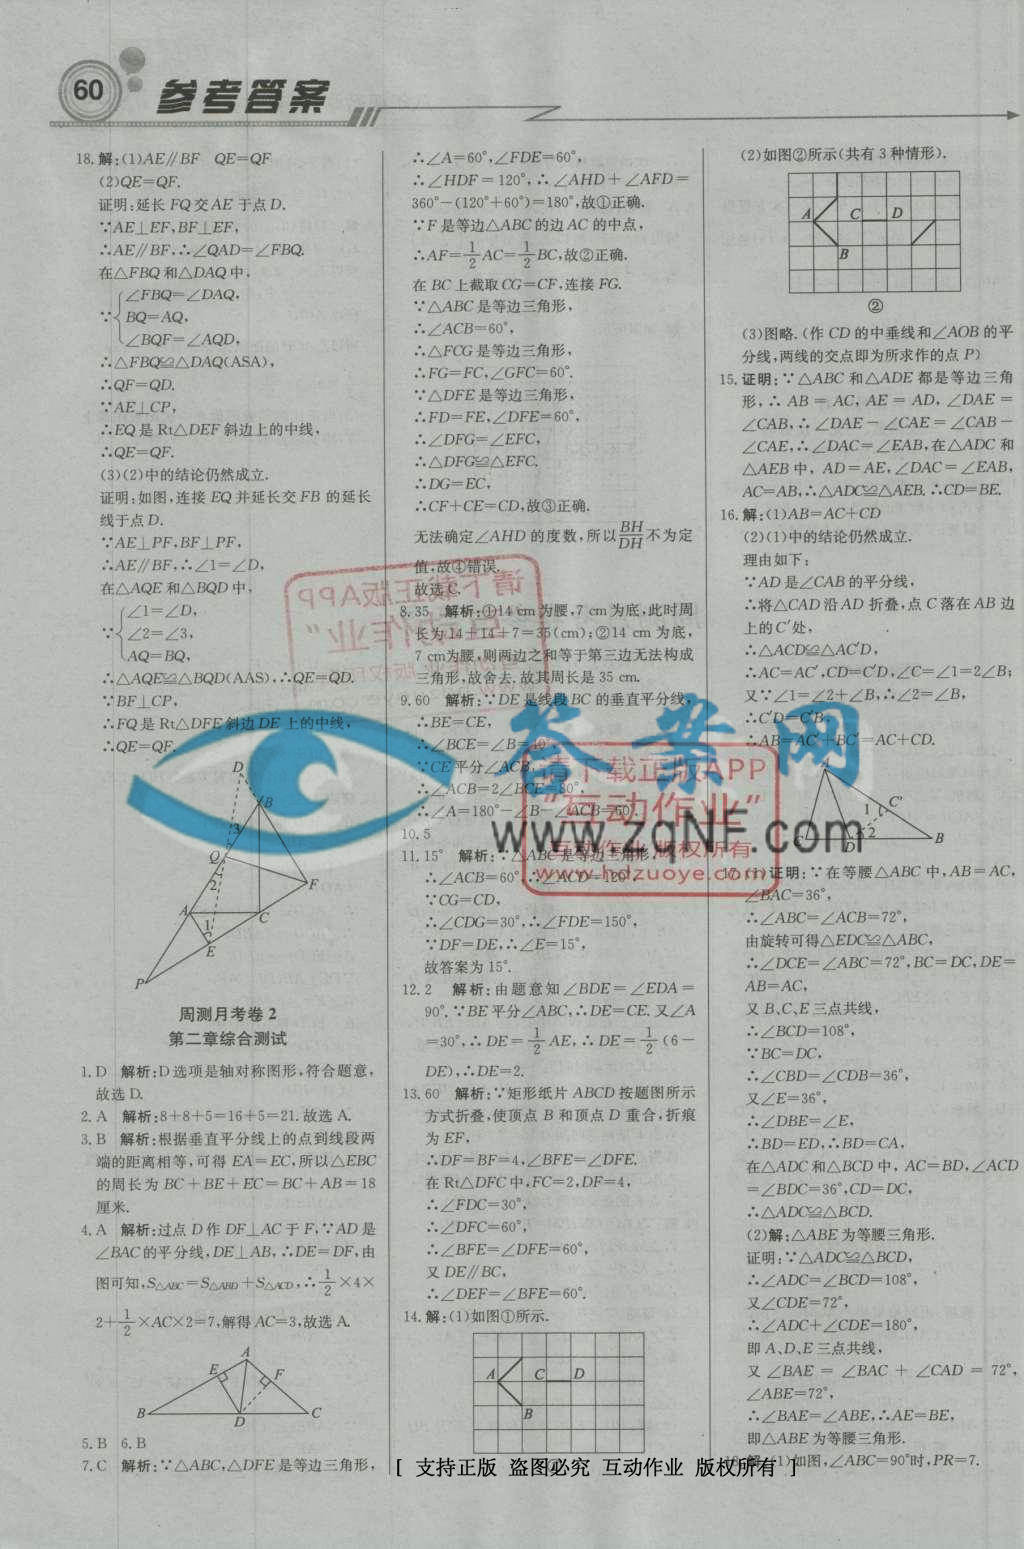 60 参考答案
18.解:(1)AE∥BF QE=QF
(2)QE=QF.
证明:延长FQ交AE于点D.
∵AE⊥EF,BF⊥EF,
∴AE∥BF,∴∠QAD=∠FBQ.
在△FBQ和△DAQ中,
∠FBQ=∠DAQ,
∵ BQ=AQ,
∠BQF=∠AQD,
∴△FBQ≌△DAQ(ASA),
∴QF=QD.
∵AE⊥CP,
∴EQ是Rt△DEF斜边上的中线,
∴QE=QF.
(3)(2)中的结论仍然成立.
证明:如图,连接EQ并延长交FB的延长
线于点D.
∵AE⊥PF,BF⊥PF,
∴AE∥BF,∴∠1=∠D.
在△AQE和△BQD中,
∠1=∠D,
∵ ∠2=∠3,
AQ=BQ,
∴△AQE≌△BQD(AAS),∴QE=QD.
∵BF⊥CP,
∴FQ是Rt△DFE斜边DE上的中线,
∴QE=QF.
D
B
3
Q
F
2
A
C
1
E
P
周测月考卷2
第二章综合测试
1.D 解析:D选项是轴对称图形,符合题意,
故选D.
2.A 解析:8+8+5=16+5=21.故选A.
3.B 解析:根据垂直平分线上的点到线段两
端的距离相等,可得EA=EC,所以△EBC
的周长为BC+BE+EC=BC+AB=18
厘米.
4.A 解析:过点D作DF⊥AC于F,∵AD是
∠BAC的平分线,DE⊥AB,∴DE=DF,由
图可知,S△ABC=S△ABD+S△ACD,∴1/2×4×
2+1/2×AC×2=7,解得AC=3,故选A.
A
E
F
B
D
C
5.B 6.B
7.C 解析:∵△ABC,△DFE是等边三角形,
∴∠A=60°,∠FDE=60°,
∴∠HDF=120°,∴∠AHD+∠AFD=
360°-(120°+60°)=180°,故①正确.
∵F是等边△ABC的边AC的中点,
∴AF=1/2AC=1/2BC,故②正确.
在BC上截取CG=CF,连接FG.
∵△ABC是等边三角形,
∴∠ACB=60°,
∴△FCG是等边三角形,
∴FG=FC,∠GFC=60°.
∵△DFE是等边三角形,
∴FD=FE,∠DFE=60°,
∴∠DFG=∠EFC,
∴△DFG≌△EFC.
∴DG=EC,
∴CF+CE=CD,故③正确.
无法确定∠AHD的度数,所以BH/DH不为定
值,故④错误.
故选C.
8.35 解析:①14 cm为腰,7 cm为底,此时周
长为14+14+7=35(cm);②14 cm为底,
7 cm为腰,则两边之和等于第三边无法构成
三角形,故舍去.故其周长是35 cm.
9.60 解析:∵DE是线段BC的垂直平分线,
∴BE=CE,
∴∠BCE=∠B=40°,
∵CE平分∠ACB,
∴∠ACB=2∠BCE=80°,
∴∠A=180°-∠B-∠ACB=60°.
10.5
11.15° 解析:∵△ABC是等边三角形,
∴∠ACB=60°,∠ACD=120°,
∵CG=CD,
∴∠CDG=30°,∴∠FDE=150°,
∵DF=DE,∴∠E=15°,
故答案为15°.
12.2 解析:由题意知∠BDE=∠EDA=
90°.∵BE平分∠ABC,∴DE=CE.又∠A
=30°,∴DE=1/2AE,∴DE=1/2(6-
DE),∴DE=2.
13.60 解析:∵矩形纸片ABCD按题图所示
方式折叠,使顶点B和顶点D重合,折痕
为EF,
∴DF=BF=4,∠BFE=∠DFE.
在Rt△DFC中,FC=2,DF=4,
∴∠FDC=30°,
∴∠DFC=60°,
∴∠BFE=∠DFE=60°,
又DE∥BC,
∴∠DEF=∠BFE=60°.
14.解:(1)如图①所示.
A C D
B
(2)如图②所示(共有3种情形).
A C D
B
②
(3)图略.(作CD的中垂线和∠AOB的平
分线,两线的交点即为所求作的点P)
15.证明:∵△ABC和△ADE都是等边三角
形,∴AB=AC,AE=AD,∠DAE=
∠CAB,∴∠DAE-∠CAE=∠CAB-
∠CAE,∴∠DAC=∠EAB,在△ADC和
△AEB中,AD=AE,∠DAC=∠EAB,
AC=AB,∴△ADC≌△AEB.∴CD=BE.
16.解:(1)AB=AC+CD
(2)(1)中的结论仍然成立.
理由如下:
∵AD是∠CAB的平分线,
∴将△CAD沿AD折叠,点C落在AB边
上的C′处,
∴△ACD≌△AC′D,
∴AC=AC′,CD=C′D,∠C=∠1=2∠B;
又∵∠1=∠2+∠B,∴∠2=∠B,
∴C′D=C′B,
∴AB=AC′+BC′=AC+CD.
A
C′
1
2
C
D
B
17.(1)证明:∵在等腰△ABC中,AB=AC,
∠BAC=36°,
∴∠ABC=∠ACB=72°,
由旋转可得△EDC≌△ABC,
∴∠DCE=∠ABC=72°,BC=DC,DE=
AB=AC,
又B、C、E三点共线,
∴∠BCD=108°,
∵BC=DC,
∴∠CBD=∠CDB=36°,
又∠E=36°,
∴∠DBE=∠E,
∴BD=ED,∴BD=CA,
在△ADC和△BCD中,AC=BD,∠ACD
=∠BDC=36°,CD=DC,
∴△ADC≌△BCD.
(2)解:△ABE为等腰三角形.
证明:∵△ADC≌△BCD,
∴∠ADC=∠BCD=108°,
又∠CDE=72°,
∴∠ADC+∠CDE=180°,
即A、D、E三点共线,
又∠BAE=∠BAC+∠CAD=72°,
∠ABE=72°,
∴∠BAE=∠ABE,∴AE=BE,
即△ABE为等腰三角形.
18.解:(1)如图,∠ABC=90°时,PR=7.
请下载正版APP
"互动作业"
请下载正版APP
"互动作业"
互动作业 版权所有
www.hdzuoye.com
答案网
www.zqNF.com
[ 支持正版 盗图必究 互动作业 版权所有 ]